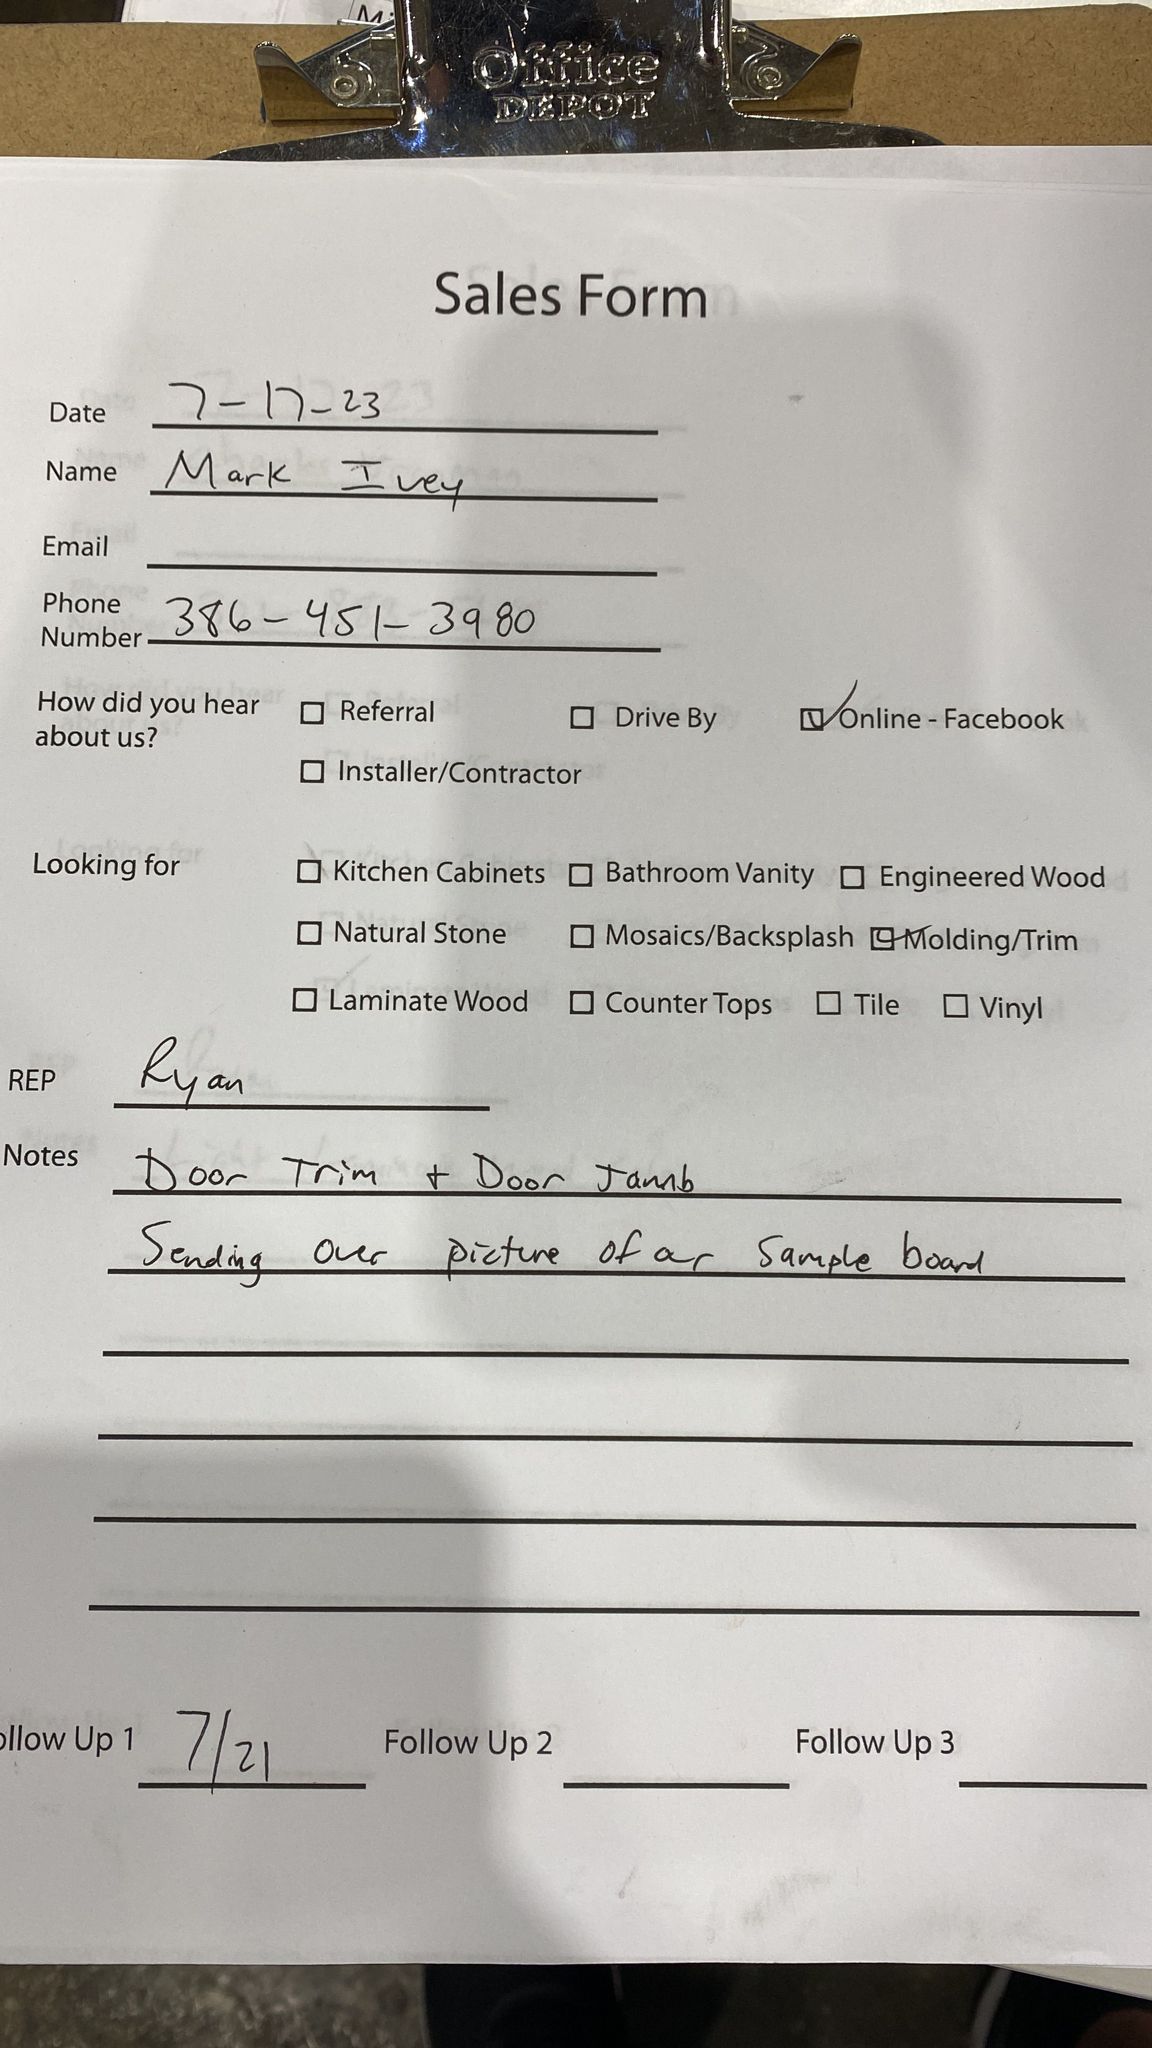 Office
DEPOT
Sales Form
Date 7-17-23
Name Mark Ivey
Email
Phone
Number 386-451-3980
How did you hear
about us?
Referral Drive By Online - Facebook
Installer/Contractor
Looking for Kitchen Cabinets Bathroom Vanity Engineered Wood
Natural Stone Mosaics/Backsplash Molding/Trim
Laminate Wood Counter Tops Tile Vinyl
REP Ryan
Notes Door Trim + Door Jamb
Sending over picture of ar Sample board
ollow Up 1 7/21 Follow Up 2 Follow Up 3